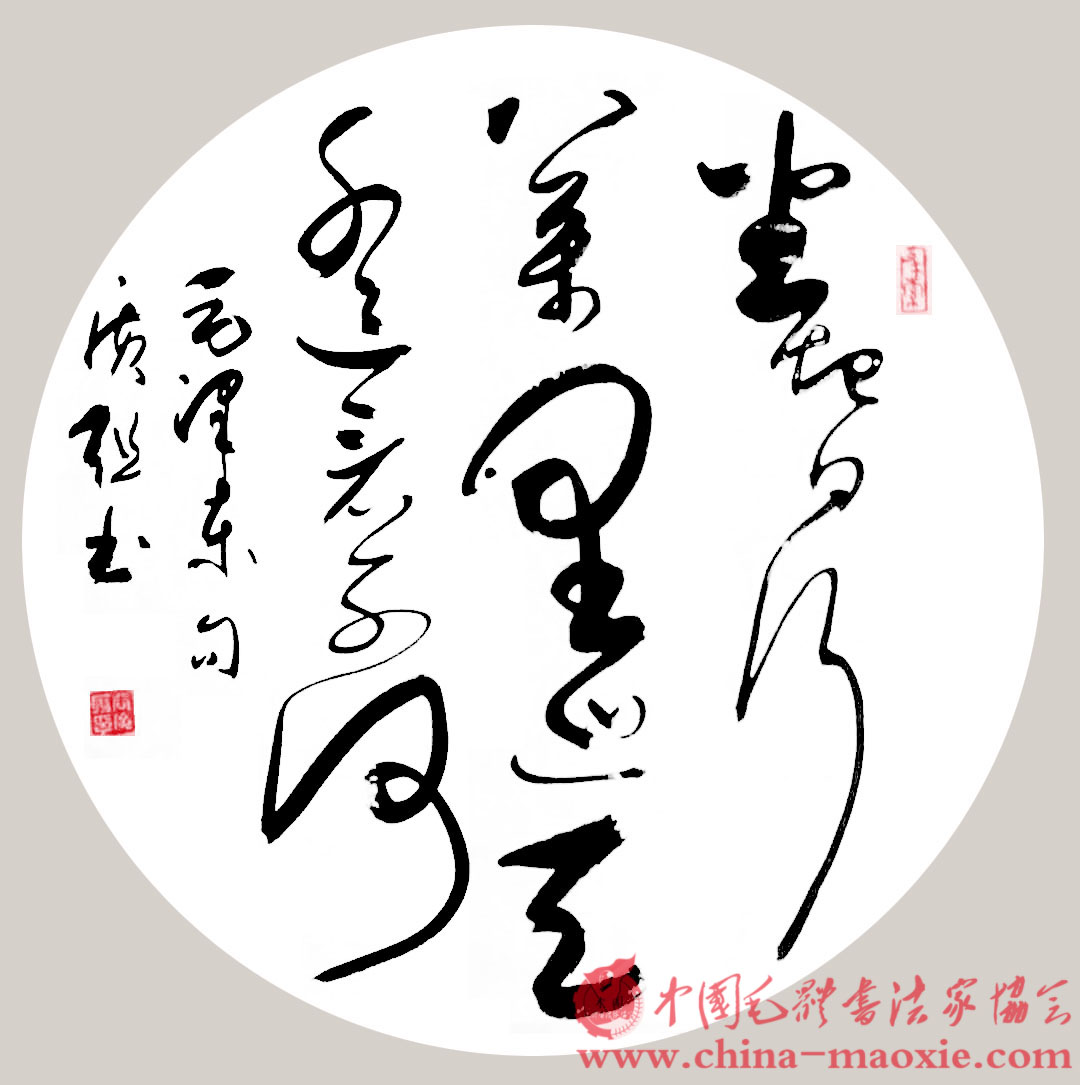 坐地日行
八萬里巡天
遥看一千河
毛泽东句
书
中國毛体书法家協会
www.china-maoxie.com